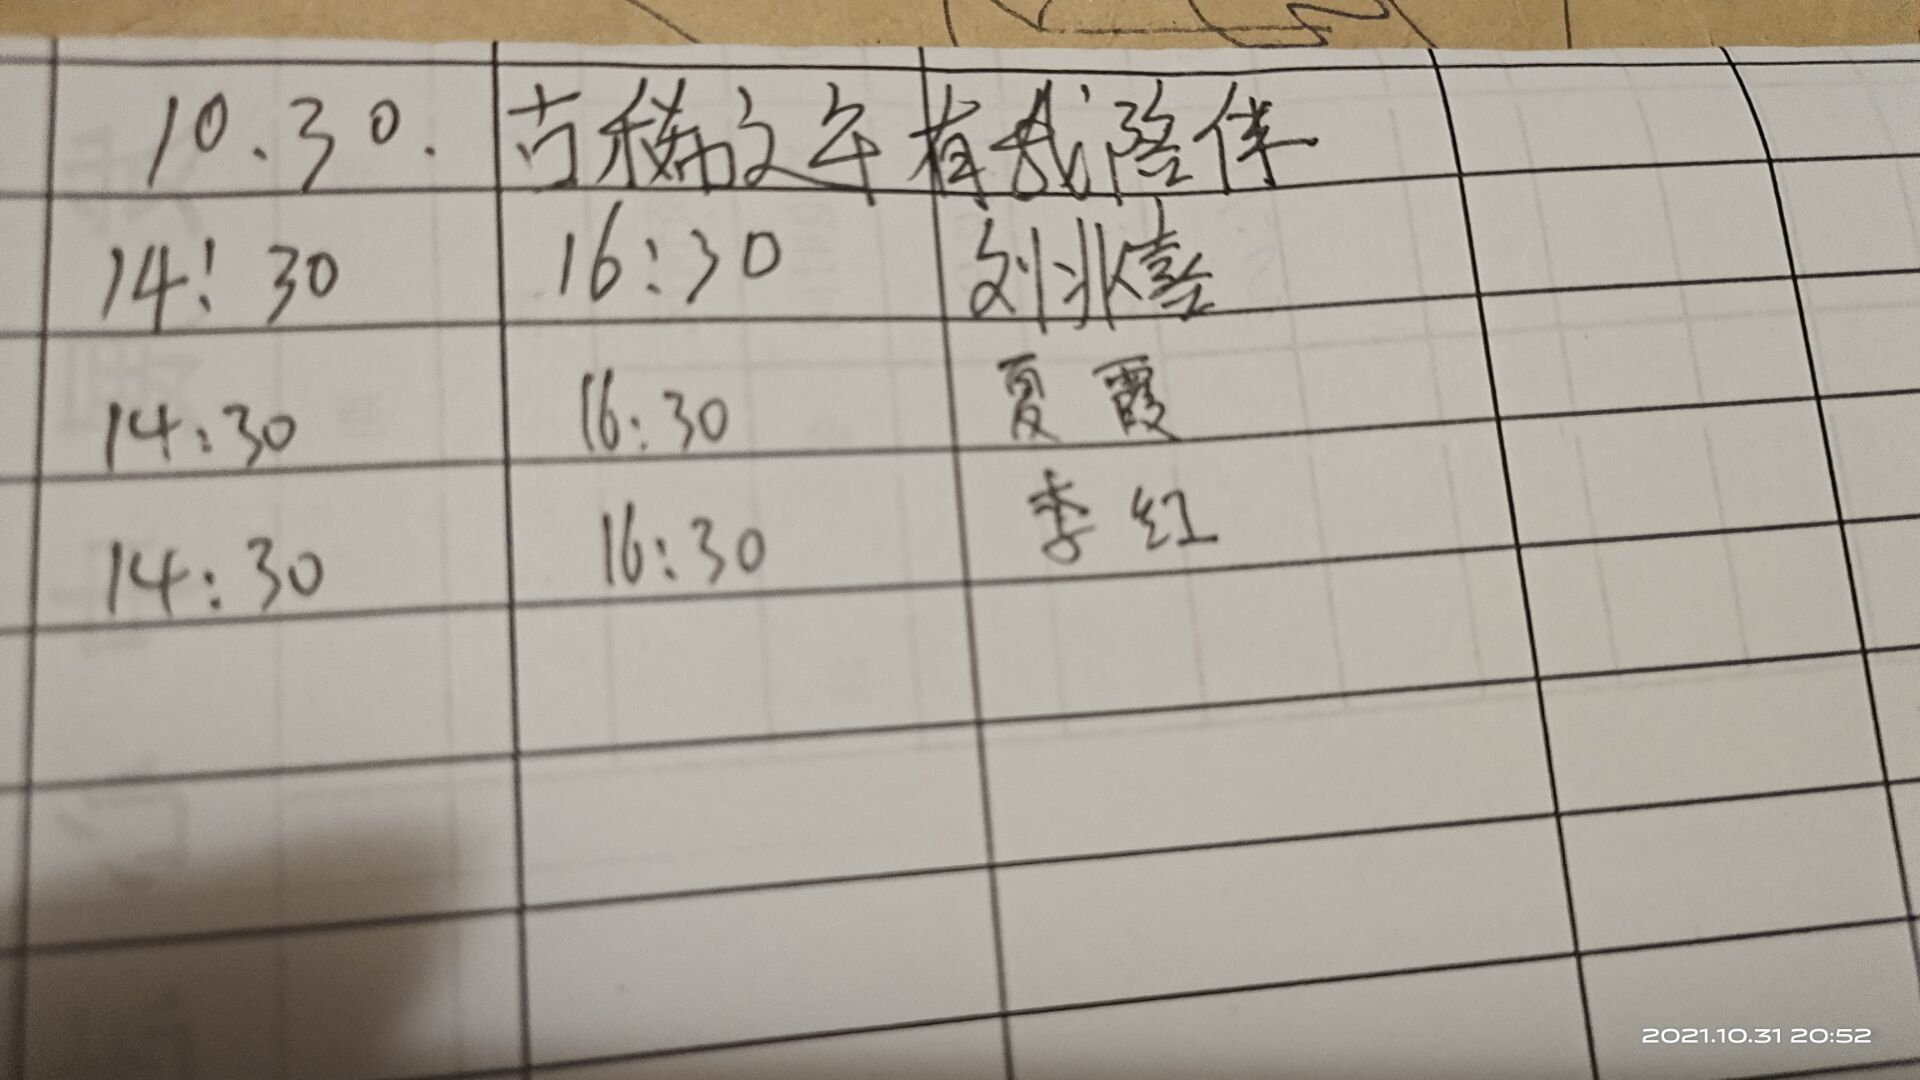 10.30. 古稀之年 有我陪伴
14:30 16:30 刘兆喜
14:30 16:30 夏霞
14:30 16:30 季红
2021.10.31 20:52